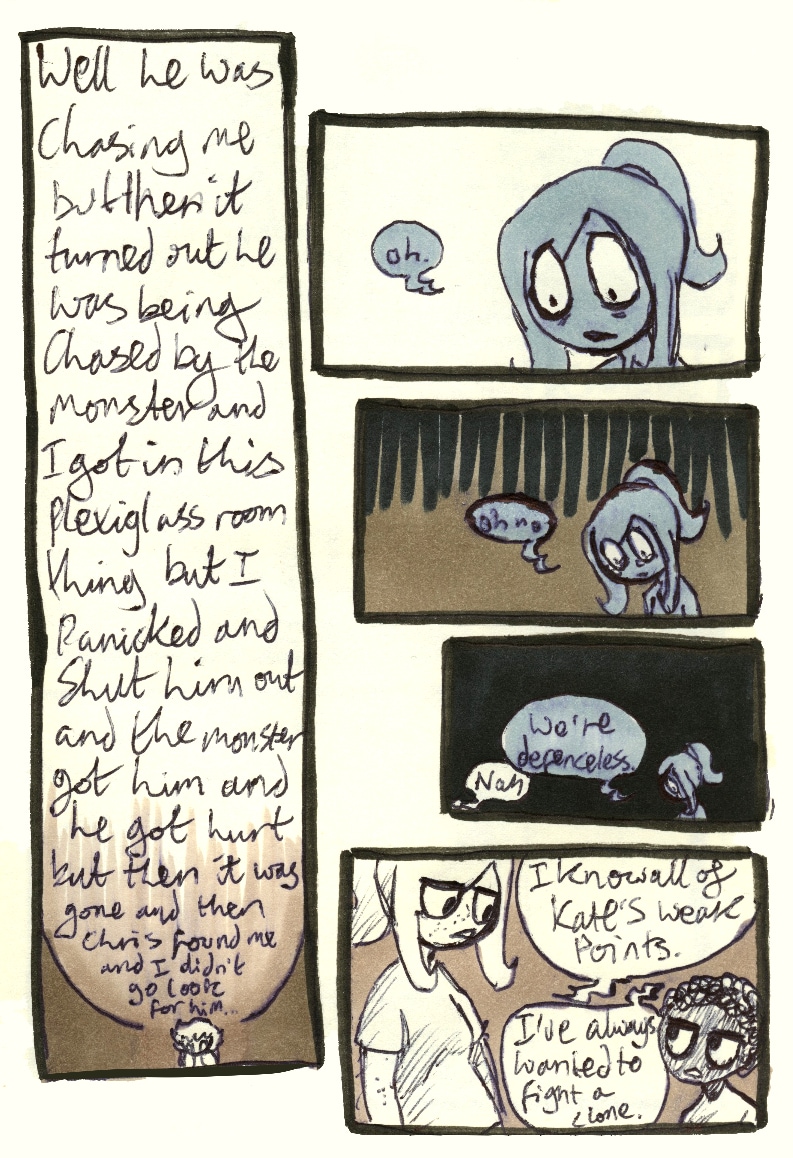 Well he was
Chasing me
but then it
turned out he
was being
Chased by the
monster and
I got in this
plexiglass room
thing but I
Panicked and
Shut him out
and the monster
got him and
he got hurt
but then it was
gone and then
Chris found me
and I didn't
go look
for him...
oh.
oh no
We're
defenceless.
Nah
I know all of
Kate's weak
Points.
I've always
wanted to
fight a
clone.